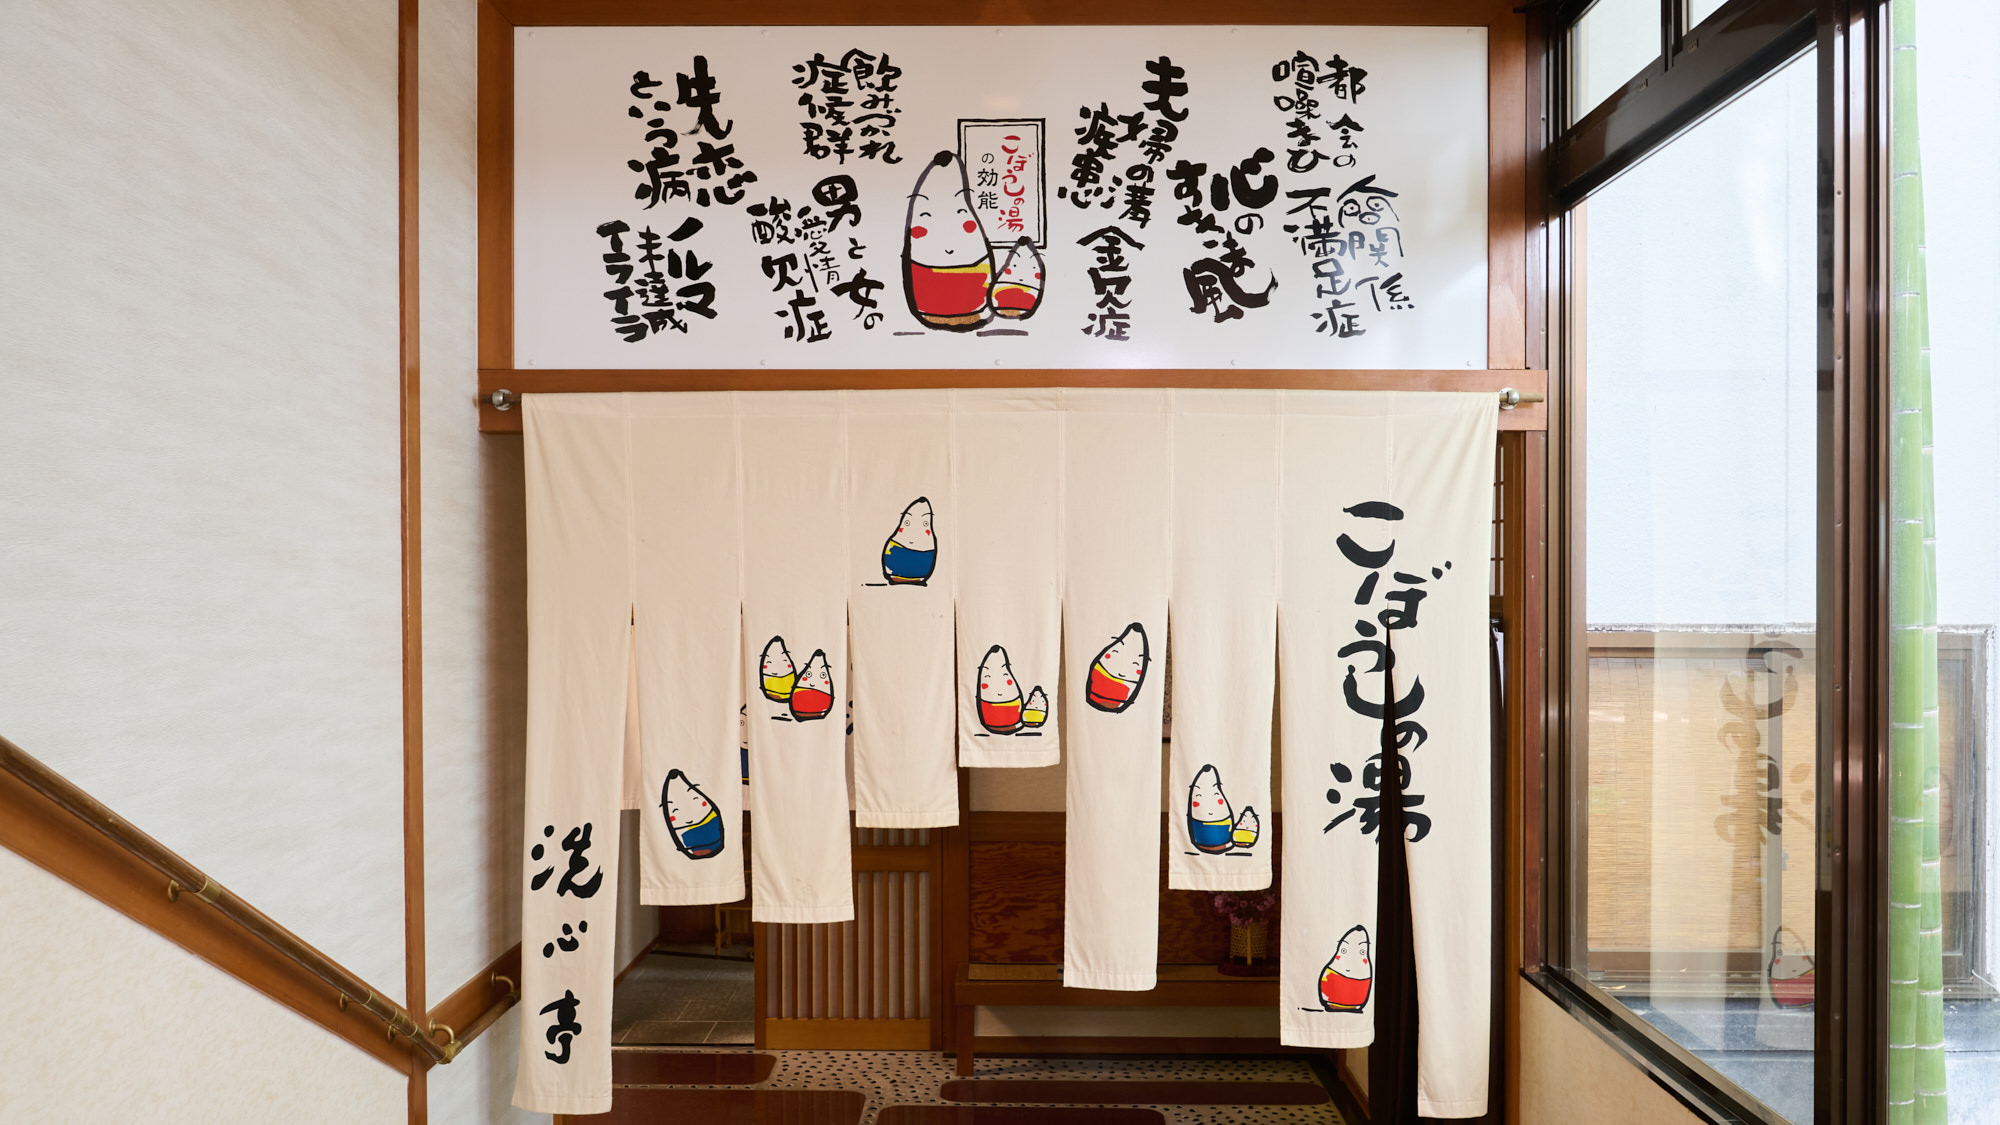 都会の
喧噪まひ
人間関係
不満足症
心の
すきま風
夫婦の溝
疾患
金欠症
こぼうしの湯
の効能
飲みづかれ
症候群
男と女の
愛情
酸欠症
失恋
という病
ノルマ
未達成
イライラ
こぼうしの湯
洗心亭